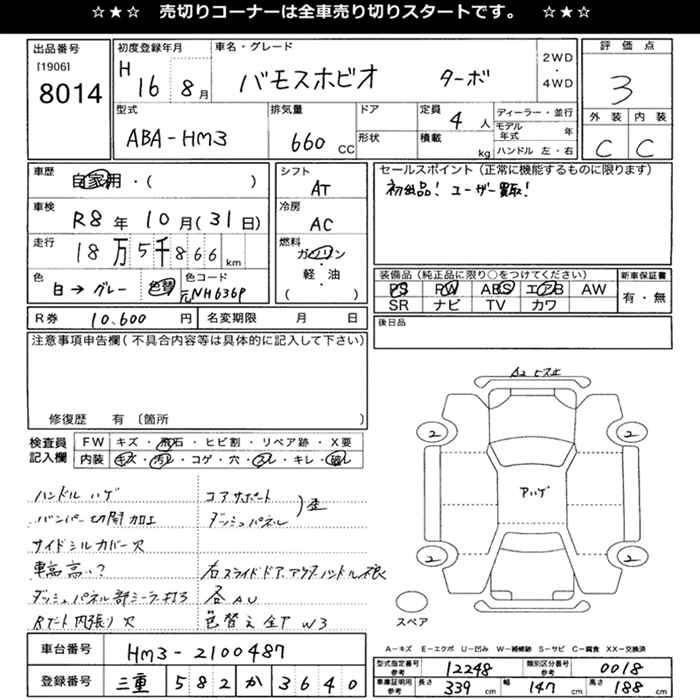 ☆★☆ 売切りコーナーは全車売り切りスタートです。 ☆★☆
出品番号
[1906]
8014
初度登録年月
H 16 8 月
車名・グレード
バモスホビオ ターボ
2WD
・
4WD
評価点
3
外装 内装
C C
型式
ABA-HM3
排気量
660 CC
ドア
形状
定員 4 人
積載 kg
ディーラー・並行
モデル年式 年
ハンドル 左・右
車歴
自家用・( )
車検
R8 年 10 月 (31 日)
走行
18 万 5 千 866 km
色
白→グレー 色替
色コード
元NH636P
シフト
AT
冷房
AC
燃料
ガソリン
・
軽・油
( )
セールスポイント(正常に機能するものに限ります)
初出品! ユーザー買取!
装備品(純正品に限り○をつけてください)
PS PW ABS エアB AW
SR ナビ TV カワ
新車保証書
有・無
R券 10,600 円
名変期限 月 日
後日品
注意事項申告欄(不具合内容等は具体的に記入して下さい)
修復歴 有 〔箇所 〕
検査員記入欄
FW キズ・飛石・ヒビ割・リペア跡・X要
内装 キズ・汚レ・コゲ・穴・スレ・キレ・破レ
ハンドル ハゲ
バンパー切開加工
サイドシルカバー欠
車高高い?
ダッシュパネル部シーラー
内張り欠
コアサポート
ダッシュパネル
) 歪
右スライドドア、アウターハンドル不良
各AU
色替え全P W3
A2 ビスホ
2 2
アハゲ
2 2
スペア
A-キズ E-エクボ U-凹み W-補修跡 S-サビ C-腐食 XX-交換済
車台番号
HM3-2100487
登録番号
三重 582 か 3640
型式指定番号 参考 12248
類別区分番号 参考 0018
車庫証明用 参考
長さ 339 cm
幅 147 cm
高さ 188 cm